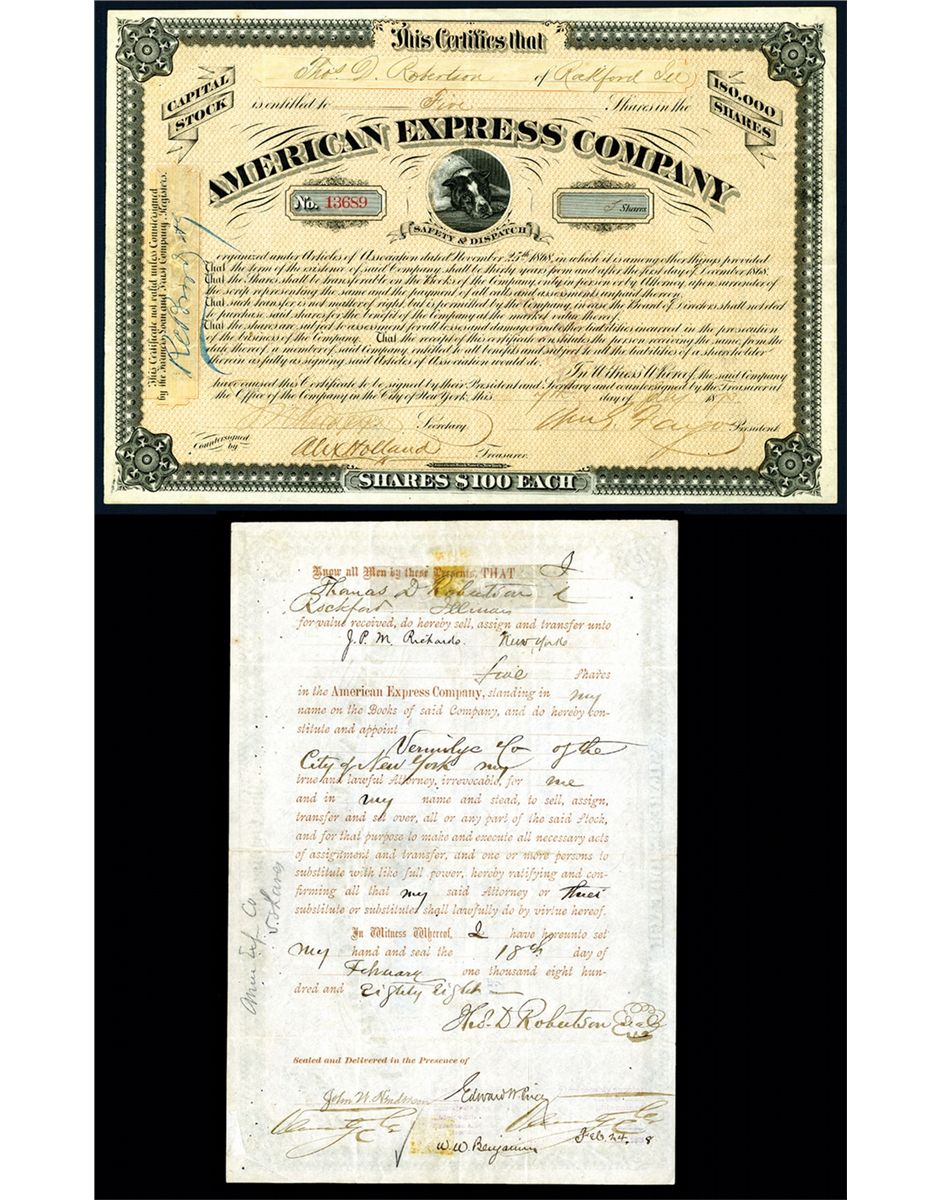 This Certifies that
Thos D. Robertson of Rockford Ill
is entitled to Five Shares in the
CAPITAL STOCK
180.000 SHARES
AMERICAN EXPRESS COMPANY
No. 13689
5 Shares
SAFETY & DISPATCH
This Certificate not valid unless Countersigned
by the Farmers Loan and Trust Company, Registers.
organized under Articles of Association dated November 25th 1868, in which it is among other things provided
That the term of the existence of said Company shall be thirty years from and after the first day of December 1868.
That the Shares shall be transferable on the Books of the Company, only in person or by Attorney, upon surrender of
the scrip representing the same and the payment of all dues and assessments unpaid thereon.
That such transfer is not matter of right, but is permitted by the Company, in case the Board of Directors shall not elect
to purchase said shares for the benefit of the Company at the market value thereof.
That the shares are subject to assessment for all losses and damages and other liabilities incurred in the prosecution
of the business of the Company. That the receipt of this certificate constitutes the person receiving the same, from the
date thereof, a member of said Company, entitled to all benefits and subject to all the liabilities of a shareholder
therein as fully as signing said Articles of Association would do.
In Witness Whereof, the said Company
have caused this Certificate to be signed by their President and Secretary and countersigned by the Treasurer at
the Office of the Company in the City of New York, this day of 18
Secretary President
Countersigned by Alex Holland Treasurer.
SHARES $100 EACH
Know all Men by these Presents, THAT I
Thomas D Robertson
Rockford Illinois
for value received, do hereby sell, assign and transfer unto
J. P. M. Richards. New York
five shares
in the American Express Company, standing in my
name on the Books of said Company, and do hereby con-
stitute and appoint
Vermilye & Co of the
City of New York my
true and lawful Attorney, irrevocable, for me
and in my name and stead, to sell, assign,
transfer and set over, all or any part of the said Stock,
and for that purpose to make and execute all necessary acts
of assignment and transfer, and one or more persons to
substitute with like full power, hereby ratifying and con-
firming all that my said Attorney or their
substitute or substitutes shall lawfully do by virtue hereof.
In Witness Whereof, I have hereunto set
my hand and seal the 18th day of
February one thousand eight hun-
dred and Eighty Eight
Thos. D Robertson Seal
Sealed and Delivered in the Presence of
Amer Exp Co
5 shares
John W.
Edward W.
W. W. Benjamin
Feb. 24. 8